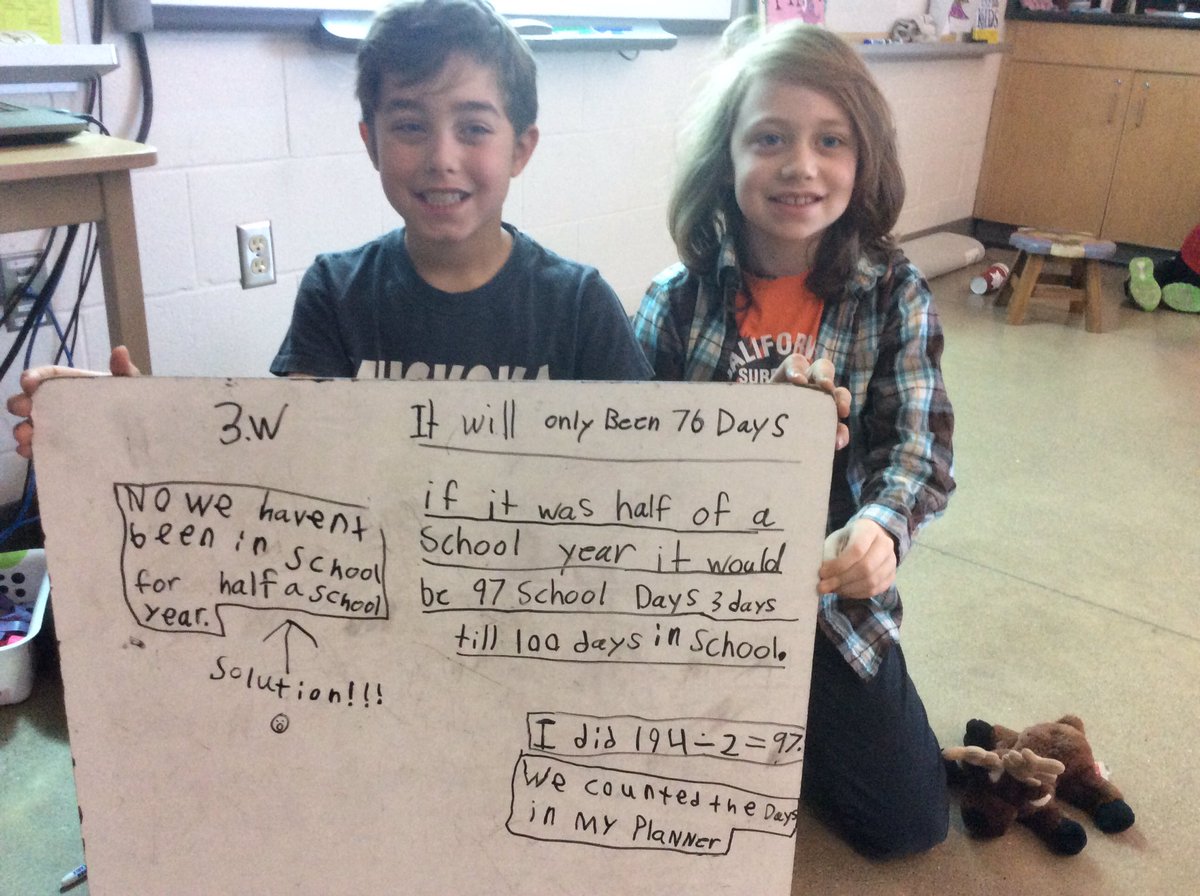 MUSKOKA
CALIFORNIA
SURF
3.W
It will only Been 76 Days
No we havent
been in school
for half a school
year.
Solution!!!
if it was half of a
School year it would
be 97 School Days 3 days
till 100 days in School.
I did 194÷2=97.
We counted the Days
in MY PlaNNer